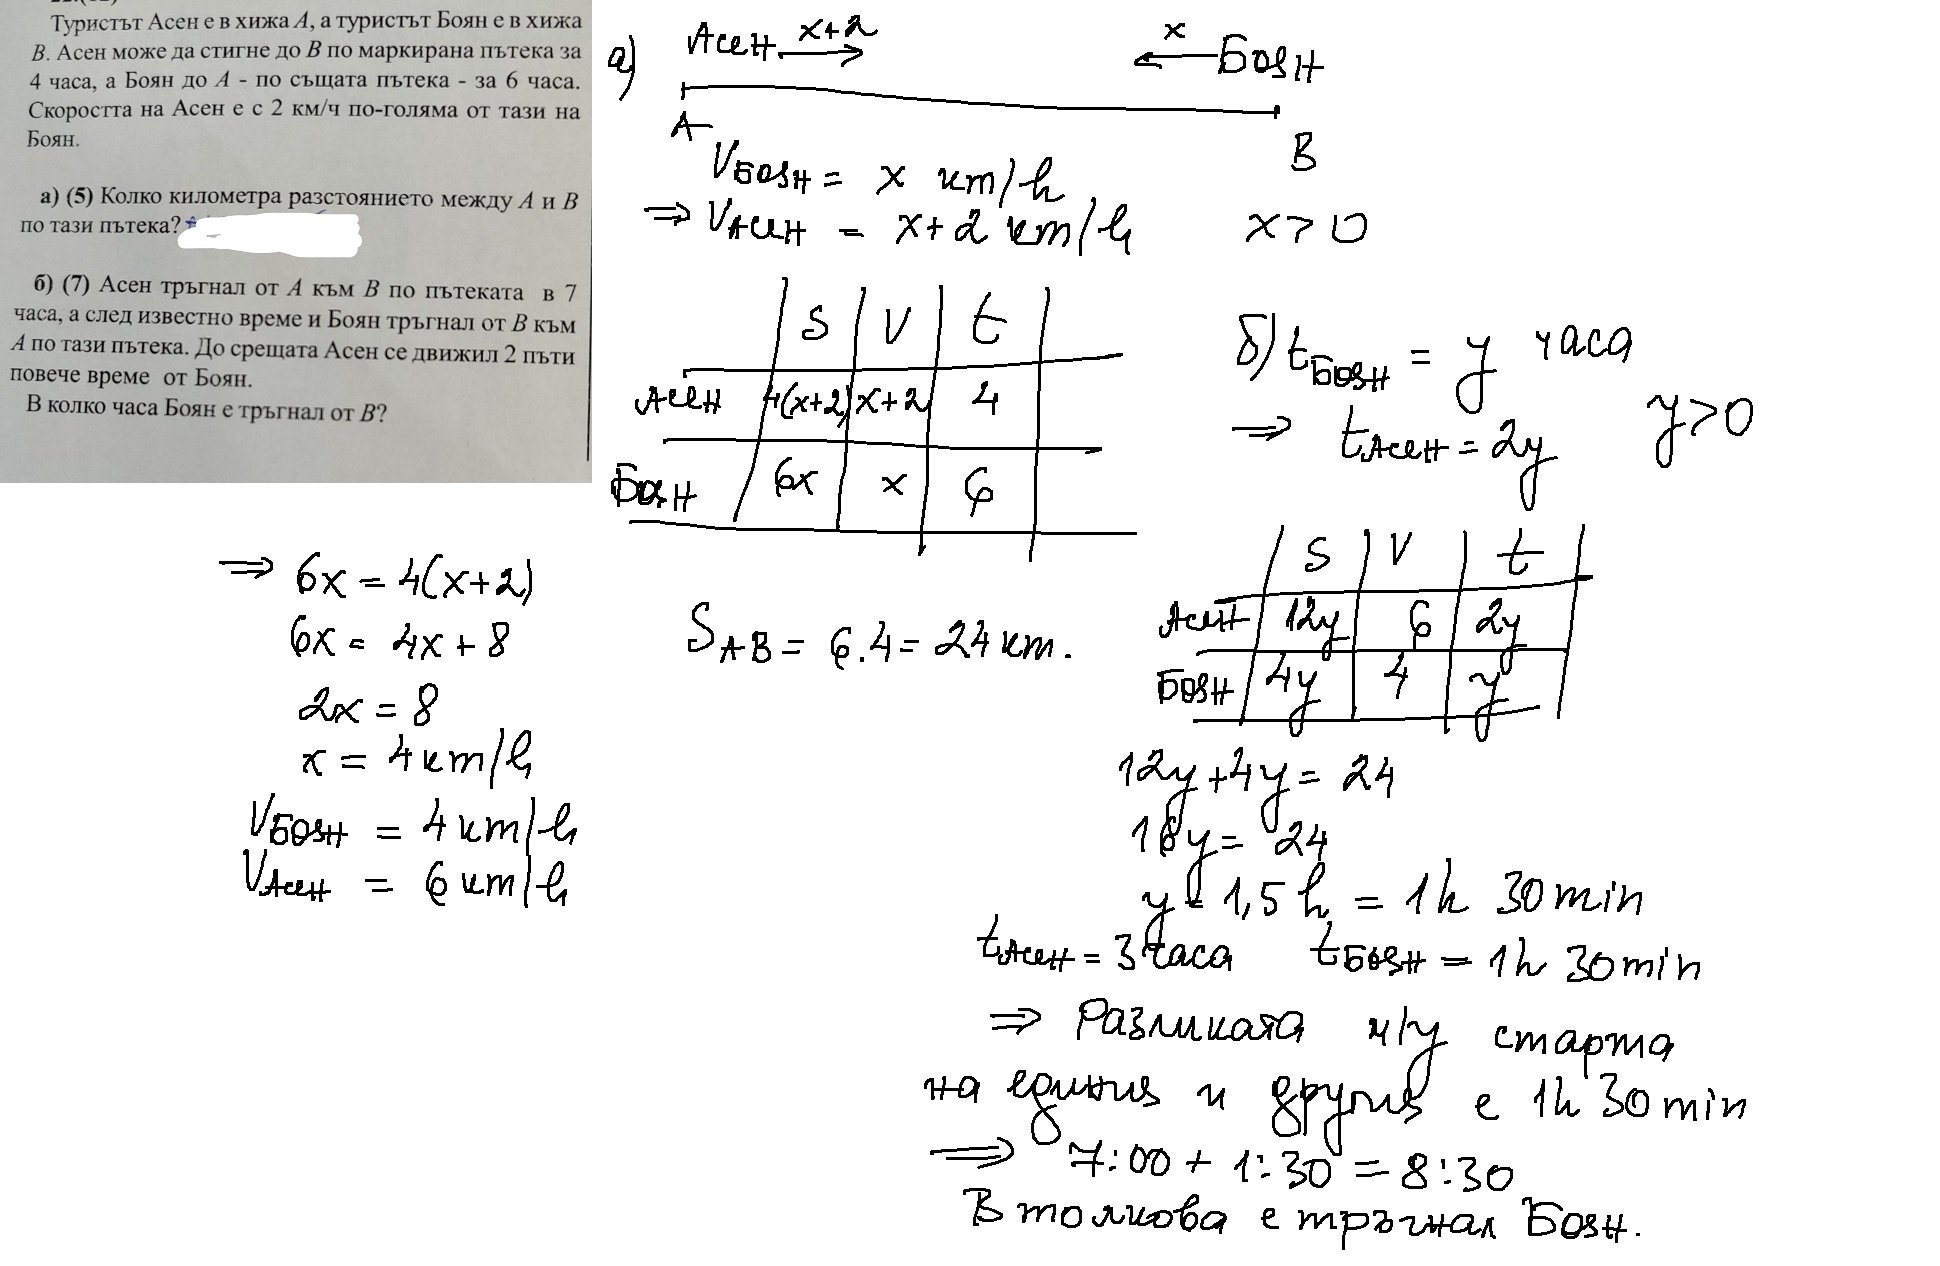 Туристът Асен е в хижа A, а туристът Боян е в хижа
B. Асен може да стигне до B по маркирана пътека за
4 часа, а Боян до A - по същата пътека - за 6 часа.
Скоростта на Асен е с 2 км/ч по-голяма от тази на
Боян.
а) (5) Колко километра разстоянието между A и B
по тази пътека?
б) (7) Асен тръгнал от A към B по пътеката в 7
часа, а след известно време и Боян тръгнал от B към
A по тази пътека. До срещата Асен се движил 2 пъти
повече време от Боян.
В колко часа Боян е тръгнал от B?
а) Асен x+2 x Боян
A B
VБоян = x km/h
⇒ VАсен = x+2 km/h x>0
S V t
Асен 4(x+2) x+2 4
Боян 6x x 6
⇒ 6x = 4(x+2)
6x = 4x + 8
2x = 8
x = 4 km/h
VБоян = 4 km/h
VАсен = 6 km/h
SAB = 6.4 = 24 km.
б) tБоян = y часа
⇒ tАсен = 2y y>0
S V t
Асен 12y 6 2y
Боян 4y 4 y
12y+4y = 24
16y = 24
y = 1,5 h = 1h 30 min
tАсен = 3 часа tБоян = 1h 30 min
⇒ Разликата м/у старта
на единия и другия е 1h 30 min
⇒ 7:00 + 1:30 = 8:30
В толкова е тръгнал Боян.